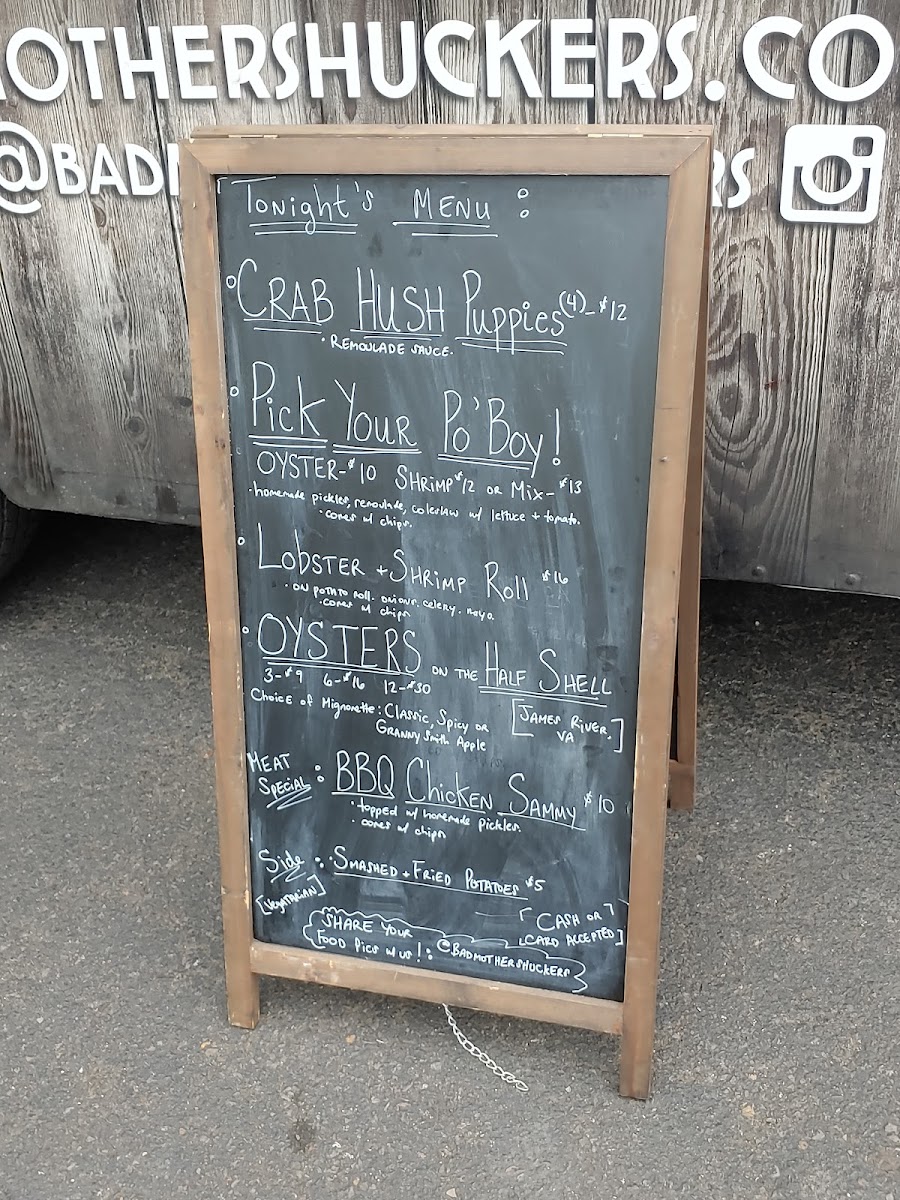 OTHERSHUCKERS.CO
@BADM RS
Tonight's MENU :
CRAB HUSH Puppies (4) - $12
· REMOULADE SAUCE.
Pick Your Po'Boy!
OYSTER - $10 SHRIMP $12 OR MIX - $13
· homemade pickles, remoulade, coleslaw w/ lettuce + tomato.
· comes w/ chips.
LOBSTER + SHRIMP ROLL $16
· ON POTATO ROLL. ONIONS. CELERY. MAYO.
· comes w/ chips
OYSTERS ON THE HALF SHELL
3-$9 6-$16 12-$30
Choice of Mignonette: Classic, Spicy or
Granny Smith Apple
[JAMES RIVER,
VA]
MEAT
SPECIAL : BBQ Chicken SAMMY $10
· topped w/ homemade pickles.
· comes w/ chips
Side : · SMASHED + FRIED POTATOES $5
[VEGATARIAN]
[CASH OR
CARD ACCEPTED]
SHARE YOUR
FOOD PICS W/ US! : @BADMOTHERSHUCKERS